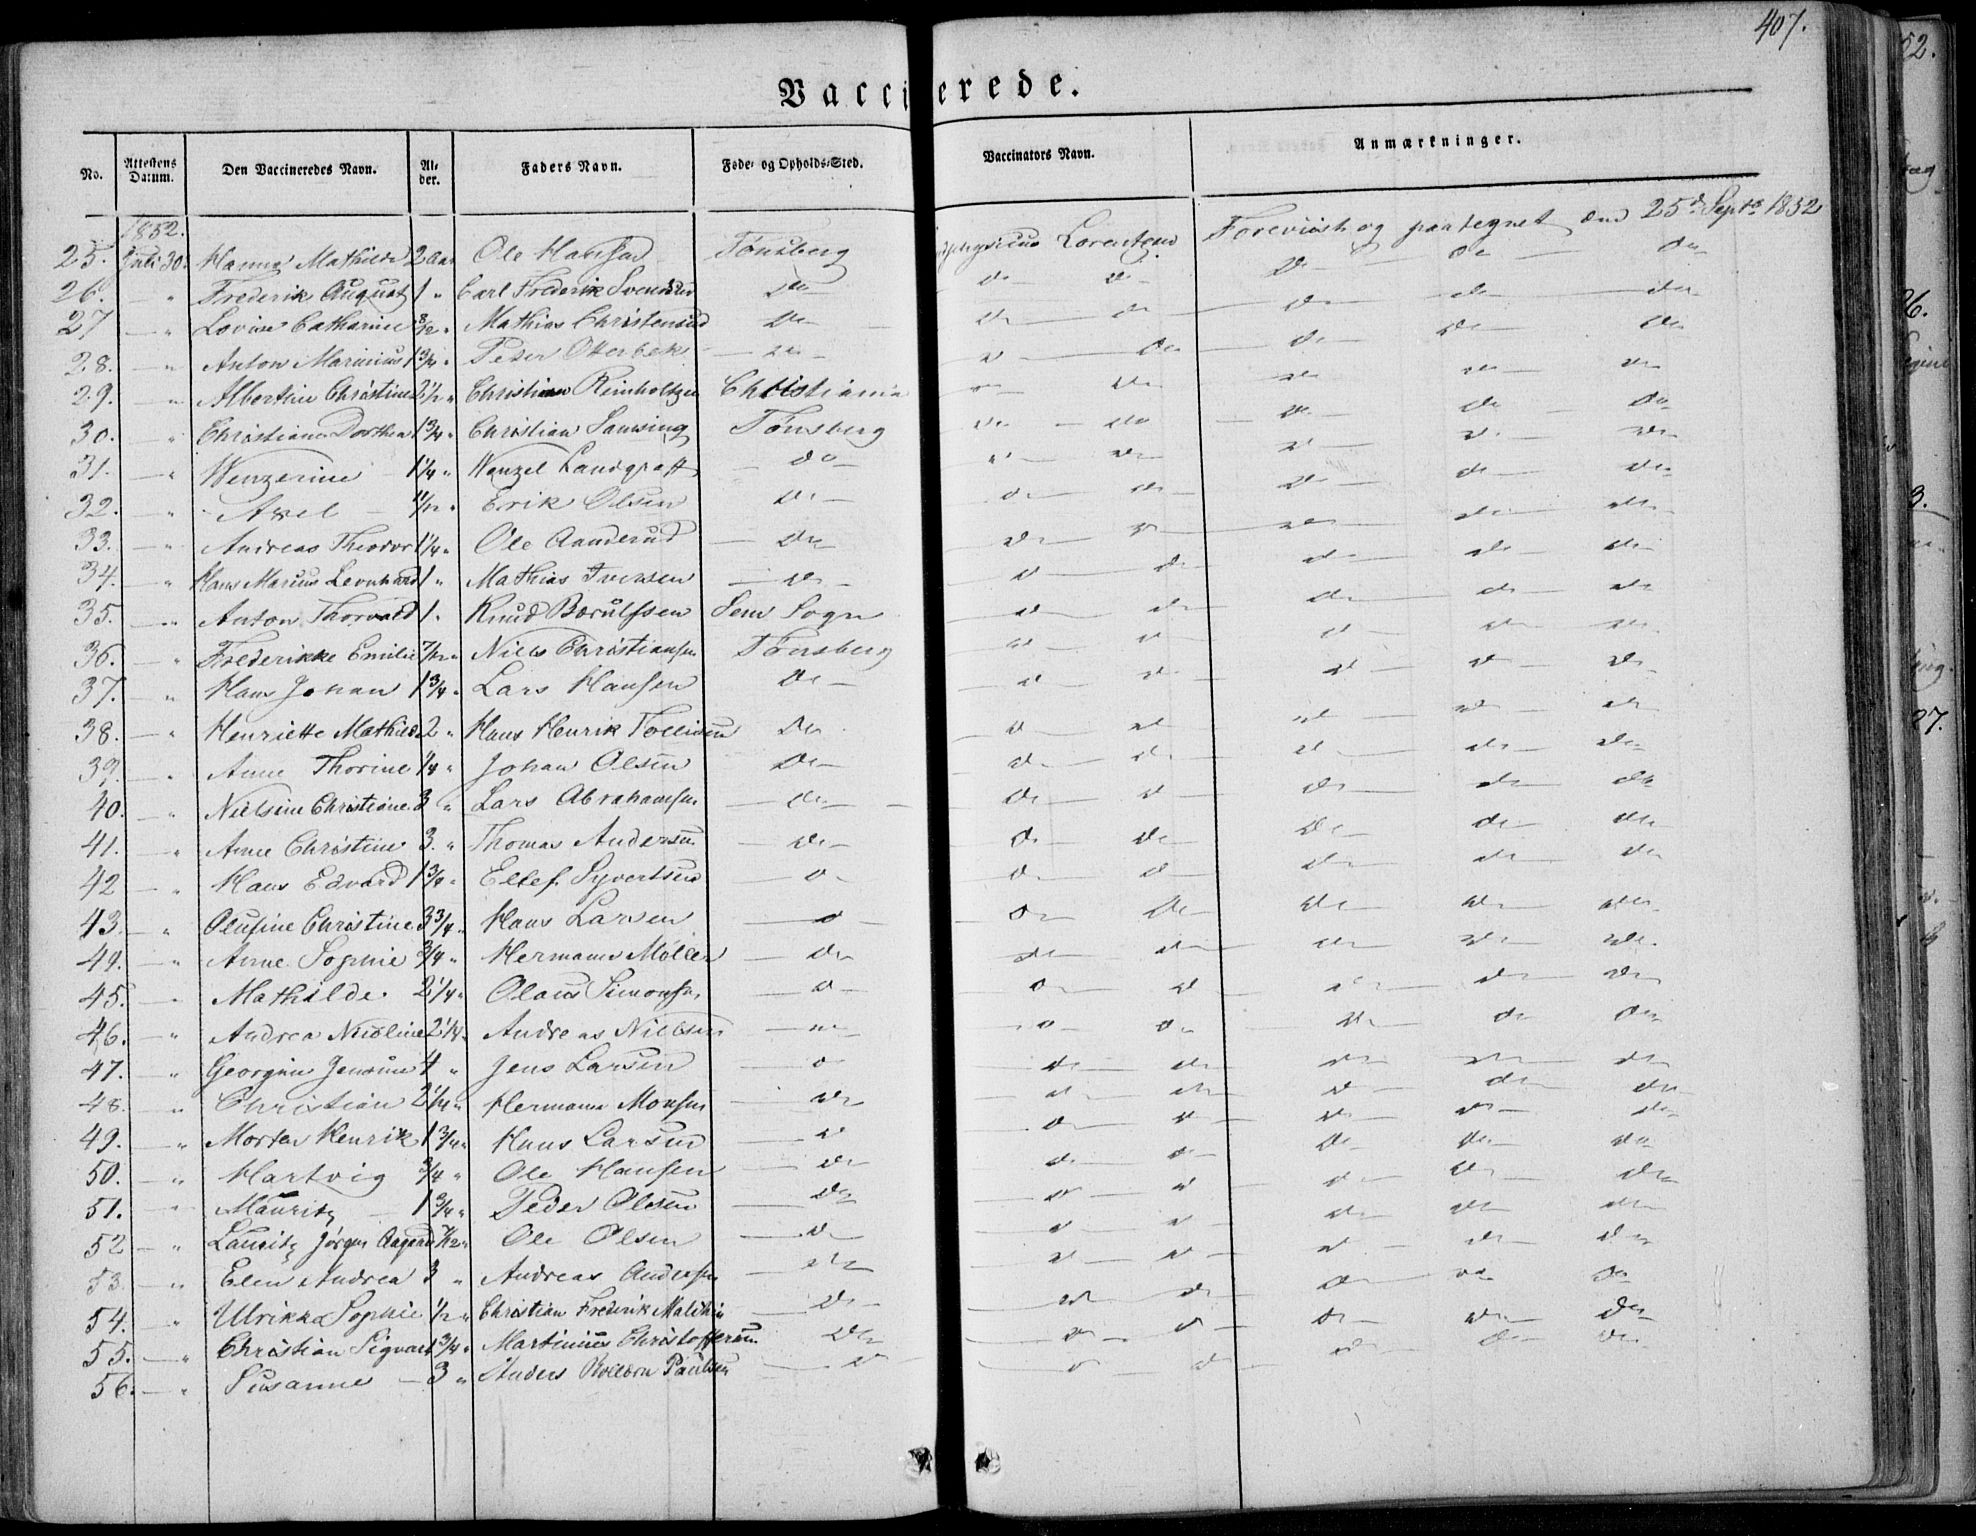 407.
Vaccinerede.
No. Attestens Datum. Den Vaccineredes Navn. Alder. Faders Navn. Føde- og Opholds-Sted. Vaccinators Navn. Anmærkninger.
1852.
25. Juli 30. Hanna Mathilde 2 Aar Ole Hansen Tønsberg Lorentzen Foreviist og paategnet den 25d Septb 1852
26. — " Frederik August 1 " Carl Frederik Svendsen do do do do do do
27 — " Lovise Catharine 8/12 " Mathias Christensen do do do do do do
28. — " Anton Marinius 1 3/4 " Peter Otterbek do do do do do do
29. — " Albertine Christine 2 1/2 " Christian Reinholtzen Christiania do do do do do
30. — " Christiane Dorthea 1 3/4 " Christian Lansing Tønsberg do do do do do
31. — " Wenzerine 1 1/4 " Wenzel Landgraff do do do do do do
32. — " Axel 11/12 " Erik Olsen do do do do do do
33. — " Andreas Theodor 1 1/4 " Ole Aanderud do do do do do do
34. — " Hans Marius Leonhard 1 " Mathias Iversen do do do do do do
35. — " Anton Thorvald 1 " Knud Berulfsen Sem Sogn do do do do do
36. — " Frederikke Emilie 7/12 " Niels Christiansen Tønsberg do do do do do
37. — " Hans Johan 1 3/4 " Lars Hansen do do do do do do
38. — " Henriette Mathilde 2 " Hans Henrik Tollefsen do do do do do do
39. — " Anne Thorine 1/4 " Johan Olsen do do do do do do
40. — " Nielsine Christiane 3 " Lars Abrahamsen do do do do do do
41. — " Anne Christine 3. " Thomas Andersen do do do do do do
42 — " Hans Edvard 1 3/4 " Ellef Syvertsen do do do do do do
43. — " Olufine Christine 3 3/4 " Hans Larsen do do do do do do
44. — " Anne Sophie 3/4 " Hermann Møller do do do do do do
45. — " Mathilde 2 1/4 " Olaus Simonsen do do do do do do
46. — " Andrea Nicoline 2 1/4 " Andreas Nielsen do do do do do do
47. — " Georgine Jensine 4 " Jens Larsen do do do do do do
48. — " Christian 2 1/4 " Hermann Monsen do do do do do do
49. — " Morten Henrik 1 3/4 " Hans Larsen do do do do do do
50. — " Hartvig 3/4 " Ole Hansen do do do do do do
51. — " Mauritz 1 3/4 " Peder Olsen do do do do do do
52 — " Lauritz Jørgen 7/12 " Ole Olsen do do do do do do
53. — " Elen Andrea 3 " Andreas Andersen do do do do do do
54. — " Ulrikka Sophie 1/2 " Christian Frederik do do do do do do
55. — " Christian Sigvart 1 3/4 " Martinius Christoffersen do do do do do do
56. — " Susanne 3 " Anders Paulsen do do do do do do